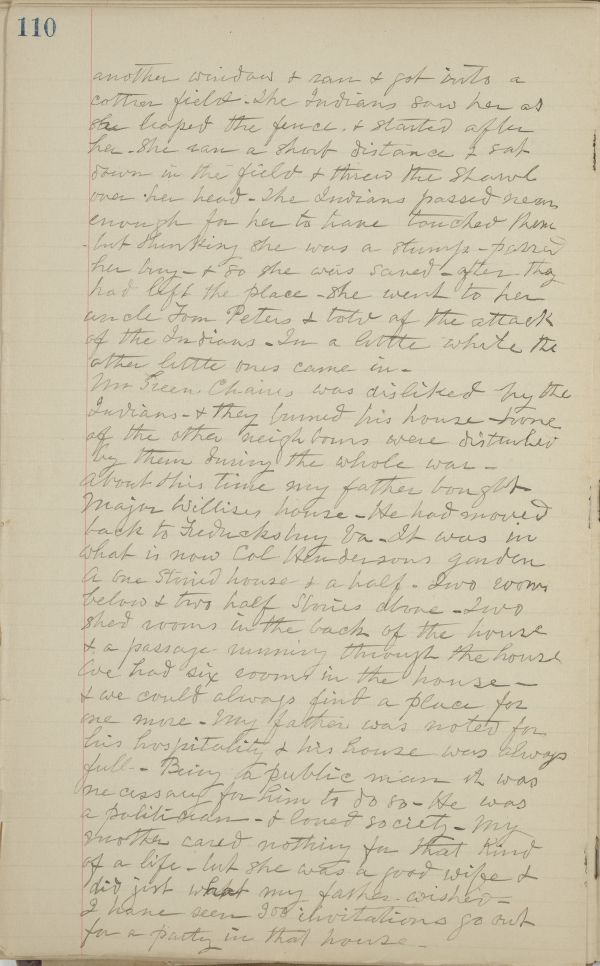 110
another window & ran & got into a
cotton field. The Indians saw her as
she leaped the fence. & started after
her. She ran a short distance & sat
down in the field & threw the shawl
over her head - The Indians passed near
enough for her to have touched them
- but thinking she was a stump - passed
her by - & so she was saved - after they
had left the place - she went to her
uncle Tom Peters & told of the attack
of the Indians - In a little while the
other little ones came in -
Mr Green Chaires was disliked by the
Indians - & they burned his house - none
of the other neighbours were disturbed
by them during the whole war -
About this time my father bought
Major Willises house - He had moved
back to Fredricksburg Va - It was in
what is now Col Hendersons garden
A one storied house & a half - Two rooms
below & two half stories above - Two
shed rooms in the back of the house
& a passage running through the house
We had six rooms in the house -
& we could always find a place for
one more - My father was noted for
his hospitality & his house was always
full - Being a public man it was
necessary for him to do so - He was
a politician - & loved society - My
mother cared nothing for that kind
of a life - but she was a good wife &
did just what my father wished -
I have seen 300 invitations go out
for a party in that house -